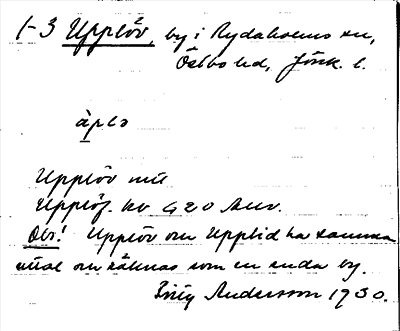 1-3 Upplöv, by i Rydaholms sn,
Östbo hd, Jönk. l.
àplə
Upplöv mtl
Upplöf. kv G20 Auv.
Obs! Upplöv om Upplid ha samma
mtal om räknas som en enda by.
Andersson 1930.